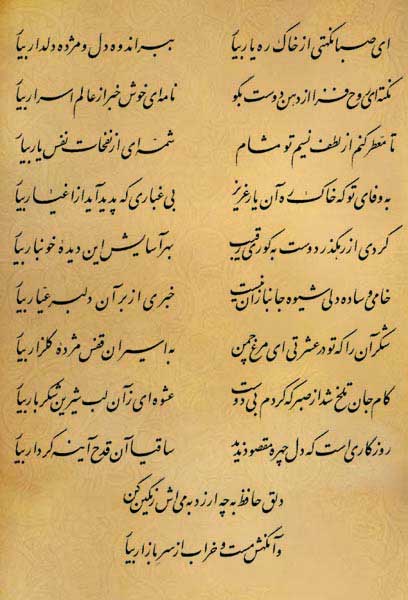 ای صبا نکهتی از خاک ره یار بیار ببر اندوه دل و مژده دلدار بیار
نکته‌ای روح فزا از دهن دوست بگو نامه‌ای خوش خبر از عالم اسرار بیار
تا معطر کنم از لطف نسیم تو مشام شمّه‌ای از نفحات نفس یار بیار
به وفای تو که خاک ره آن یار عزیز بی غباری که پدید آید از اغیار بیار
گردی از رهگذر دوست به کوری رقیب بهر آسایش این دیدهٔ خونبار بیار
خامی و ساده دلی شیوه جانبازان نیست خبری از بر آن دلبر عیار بیار
شکر آن را که تو در عشرتی ای مرغ چمن به اسیران قفس مژدهٔ گلزار بیار
کام جان تلخ شد از صبر که کردم بی دوست عشوه‌ای زآن لب شیرین شکربار بیار
روزگاری است که دل چهره مقصود ندید ساقیا آن قدح آینه کردار بیار
دلق حافظ به چه ارزد به می‌اش رنگین کن
وآنگهش مست و خراب از سر بازار بیار